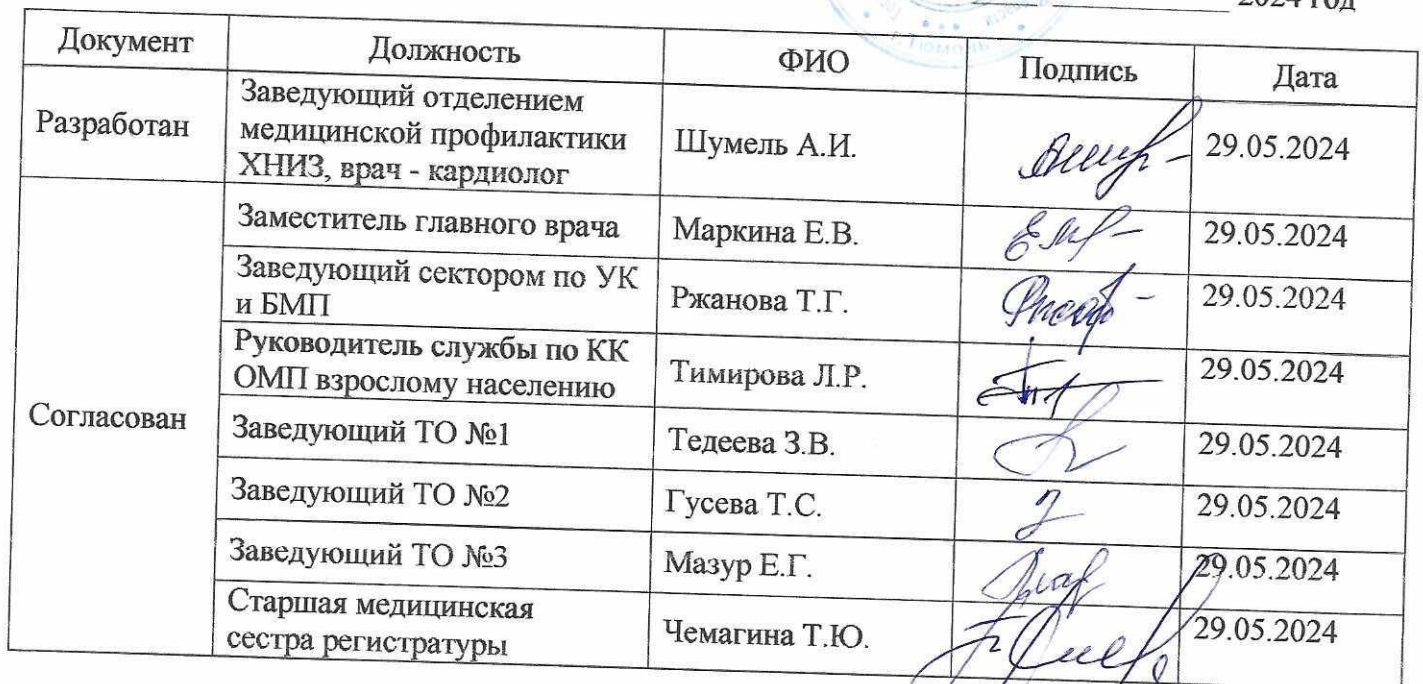 2024 год
Документ Должность ФИО Подпись Дата
Разработан Заведующий отделением
медицинской профилактики
ХНИЗ, врач - кардиолог Шумель А.И. 29.05.2024
Согласован
Заместитель главного врача Маркина Е.В. 29.05.2024
Заведующий сектором по УК
и БМП Ржанова Т.Г. 29.05.2024
Руководитель службы по КК
ОМП взрослому населению Тимирова Л.Р. 29.05.2024
Заведующий ТО №1 Тедеева З.В. 29.05.2024
Заведующий ТО №2 Гусева Т.С. 29.05.2024
Заведующий ТО №3 Мазур Е.Г. 29.05.2024
Старшая медицинская
сестра регистратуры Чемагина Т.Ю. 29.05.2024